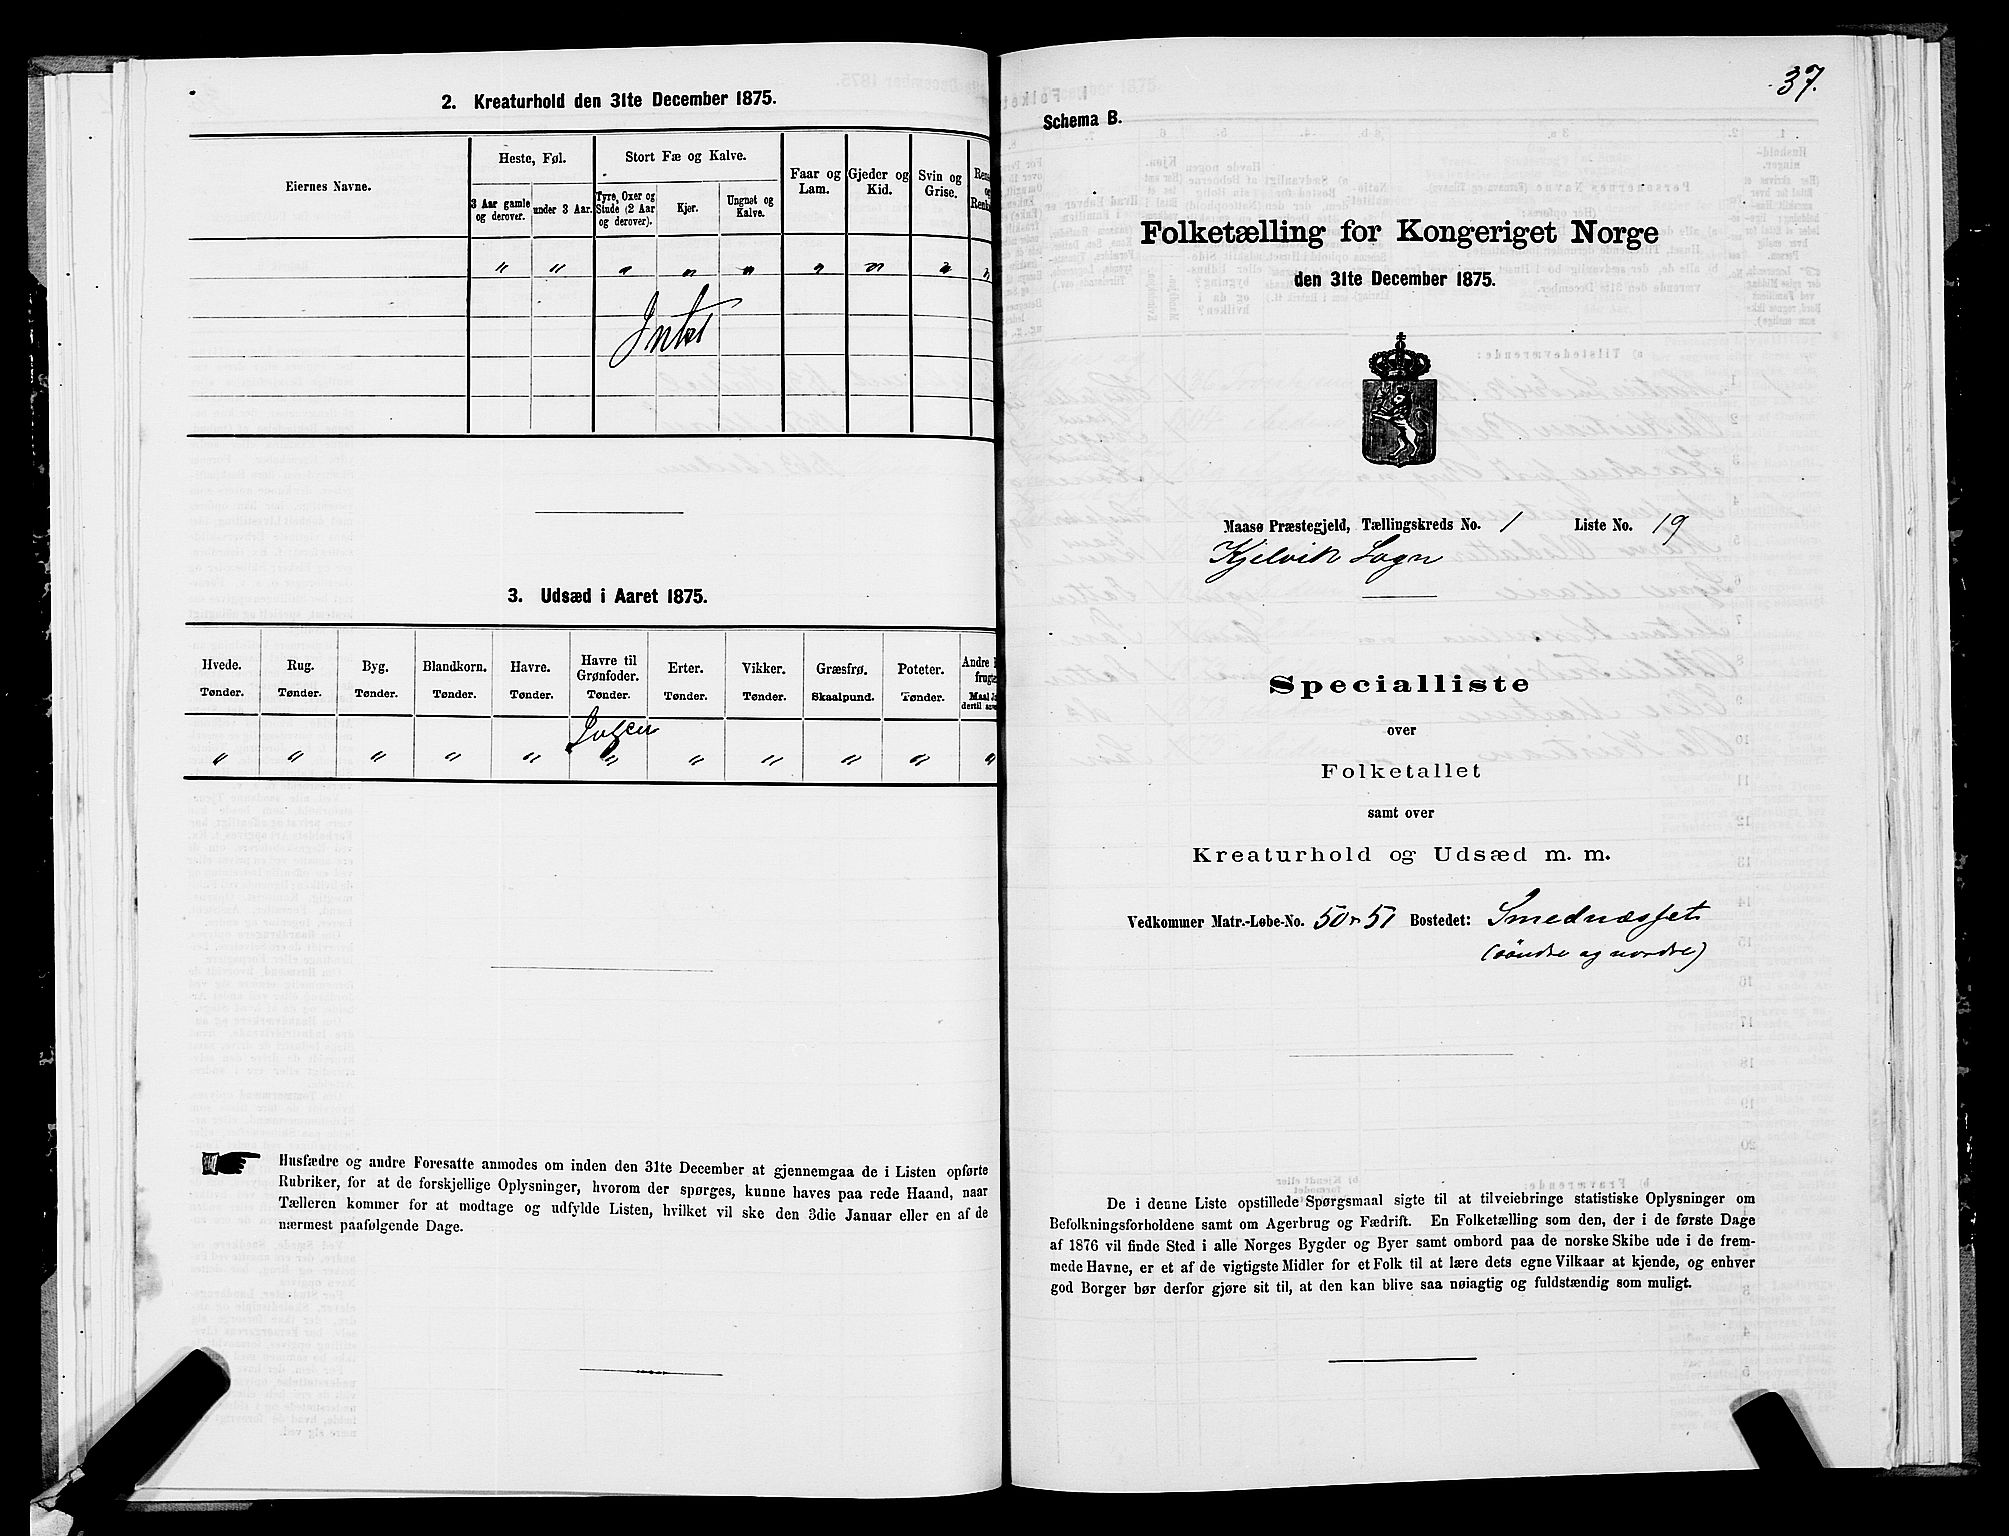 2. Kreaturhold den 31te December 1875.
Eiernes Navne.
Heste, Føl.
3 Aar gamle og derover.
under 3 Aar.
Stort Fæ og Kalve.
Tyre, Oxer og Stude (2 Aar og derover).
Kjør.
Ungnøt og Kalve.
Faar og Lam.
Gjeder og Kid.
Svin og Grise.
" " " " " " " " "
Intet
3. Udsæd i Aaret 1875.
Hvede. Rug. Byg. Blandkorn. Havre. Havre til Grønfoder. Erter. Vikker. Græsfrø. Poteter. Andre
Tønder. Tønder. Tønder. Tønder. Tønder. Tønder. Tønder. Tønder. Skaalpund. Tønder. Maal
Ingen
" " " " " " " " " " "
Husfædre og andre Foresatte anmodes om inden den 31te December at gjennemgaa de i Listen opførte
Rubriker, for at de forskjellige Oplysninger, hvorom der spørges, kunne haves paa rede Haand, naar
Tælleren kommer for at modtage og udfylde Listen, hvilket vil ske den 3die Januar eller en af de
nærmest paafølgende Dage.
37.
Schema B.
Folketælling for Kongeriget Norge
den 31te December 1875.
Maasø Præstegjeld, Tællingskreds No. 1 Liste No. 19
Kjelvik Sogn
Specialliste
over
Folketallet
samt over
Kreaturhold og Udsæd m. m.
Vedkommer Matr.-Løbe-No. 50 & 51 Bostedet: Smednæsset
(søndre og nordre)
De i denne Liste opstillede Spørgsmaal sigte til at tilveiebringe statistiske Oplysninger om
Befolkningsforholdene samt om Agerbrug og Fædrift. En Folketælling som den, der i de første Dage
af 1876 vil finde Sted i alle Norges Bygder og Byer samt ombord paa de norske Skibe ude i de frem-
mede Havne, er et af de vigtigste Midler for et Folk til at lære dets egne Vilkaar at kjende, og enhver
god Borger bør derfor gjøre sit til, at den kan blive saa nøiagtig og fuldstændig som muligt.